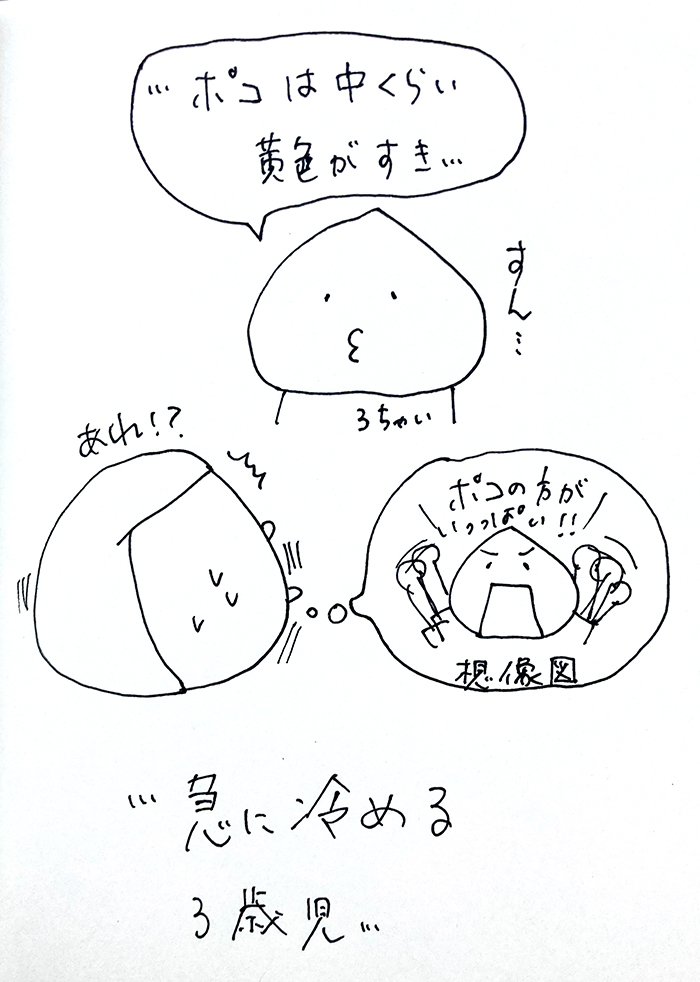 …ポコは中くらい
黄色がすき…
すん…
3ちゃい
あれ!?
ポコの方が
いっっぱい!!
想像図
…急に冷める
3歳児…